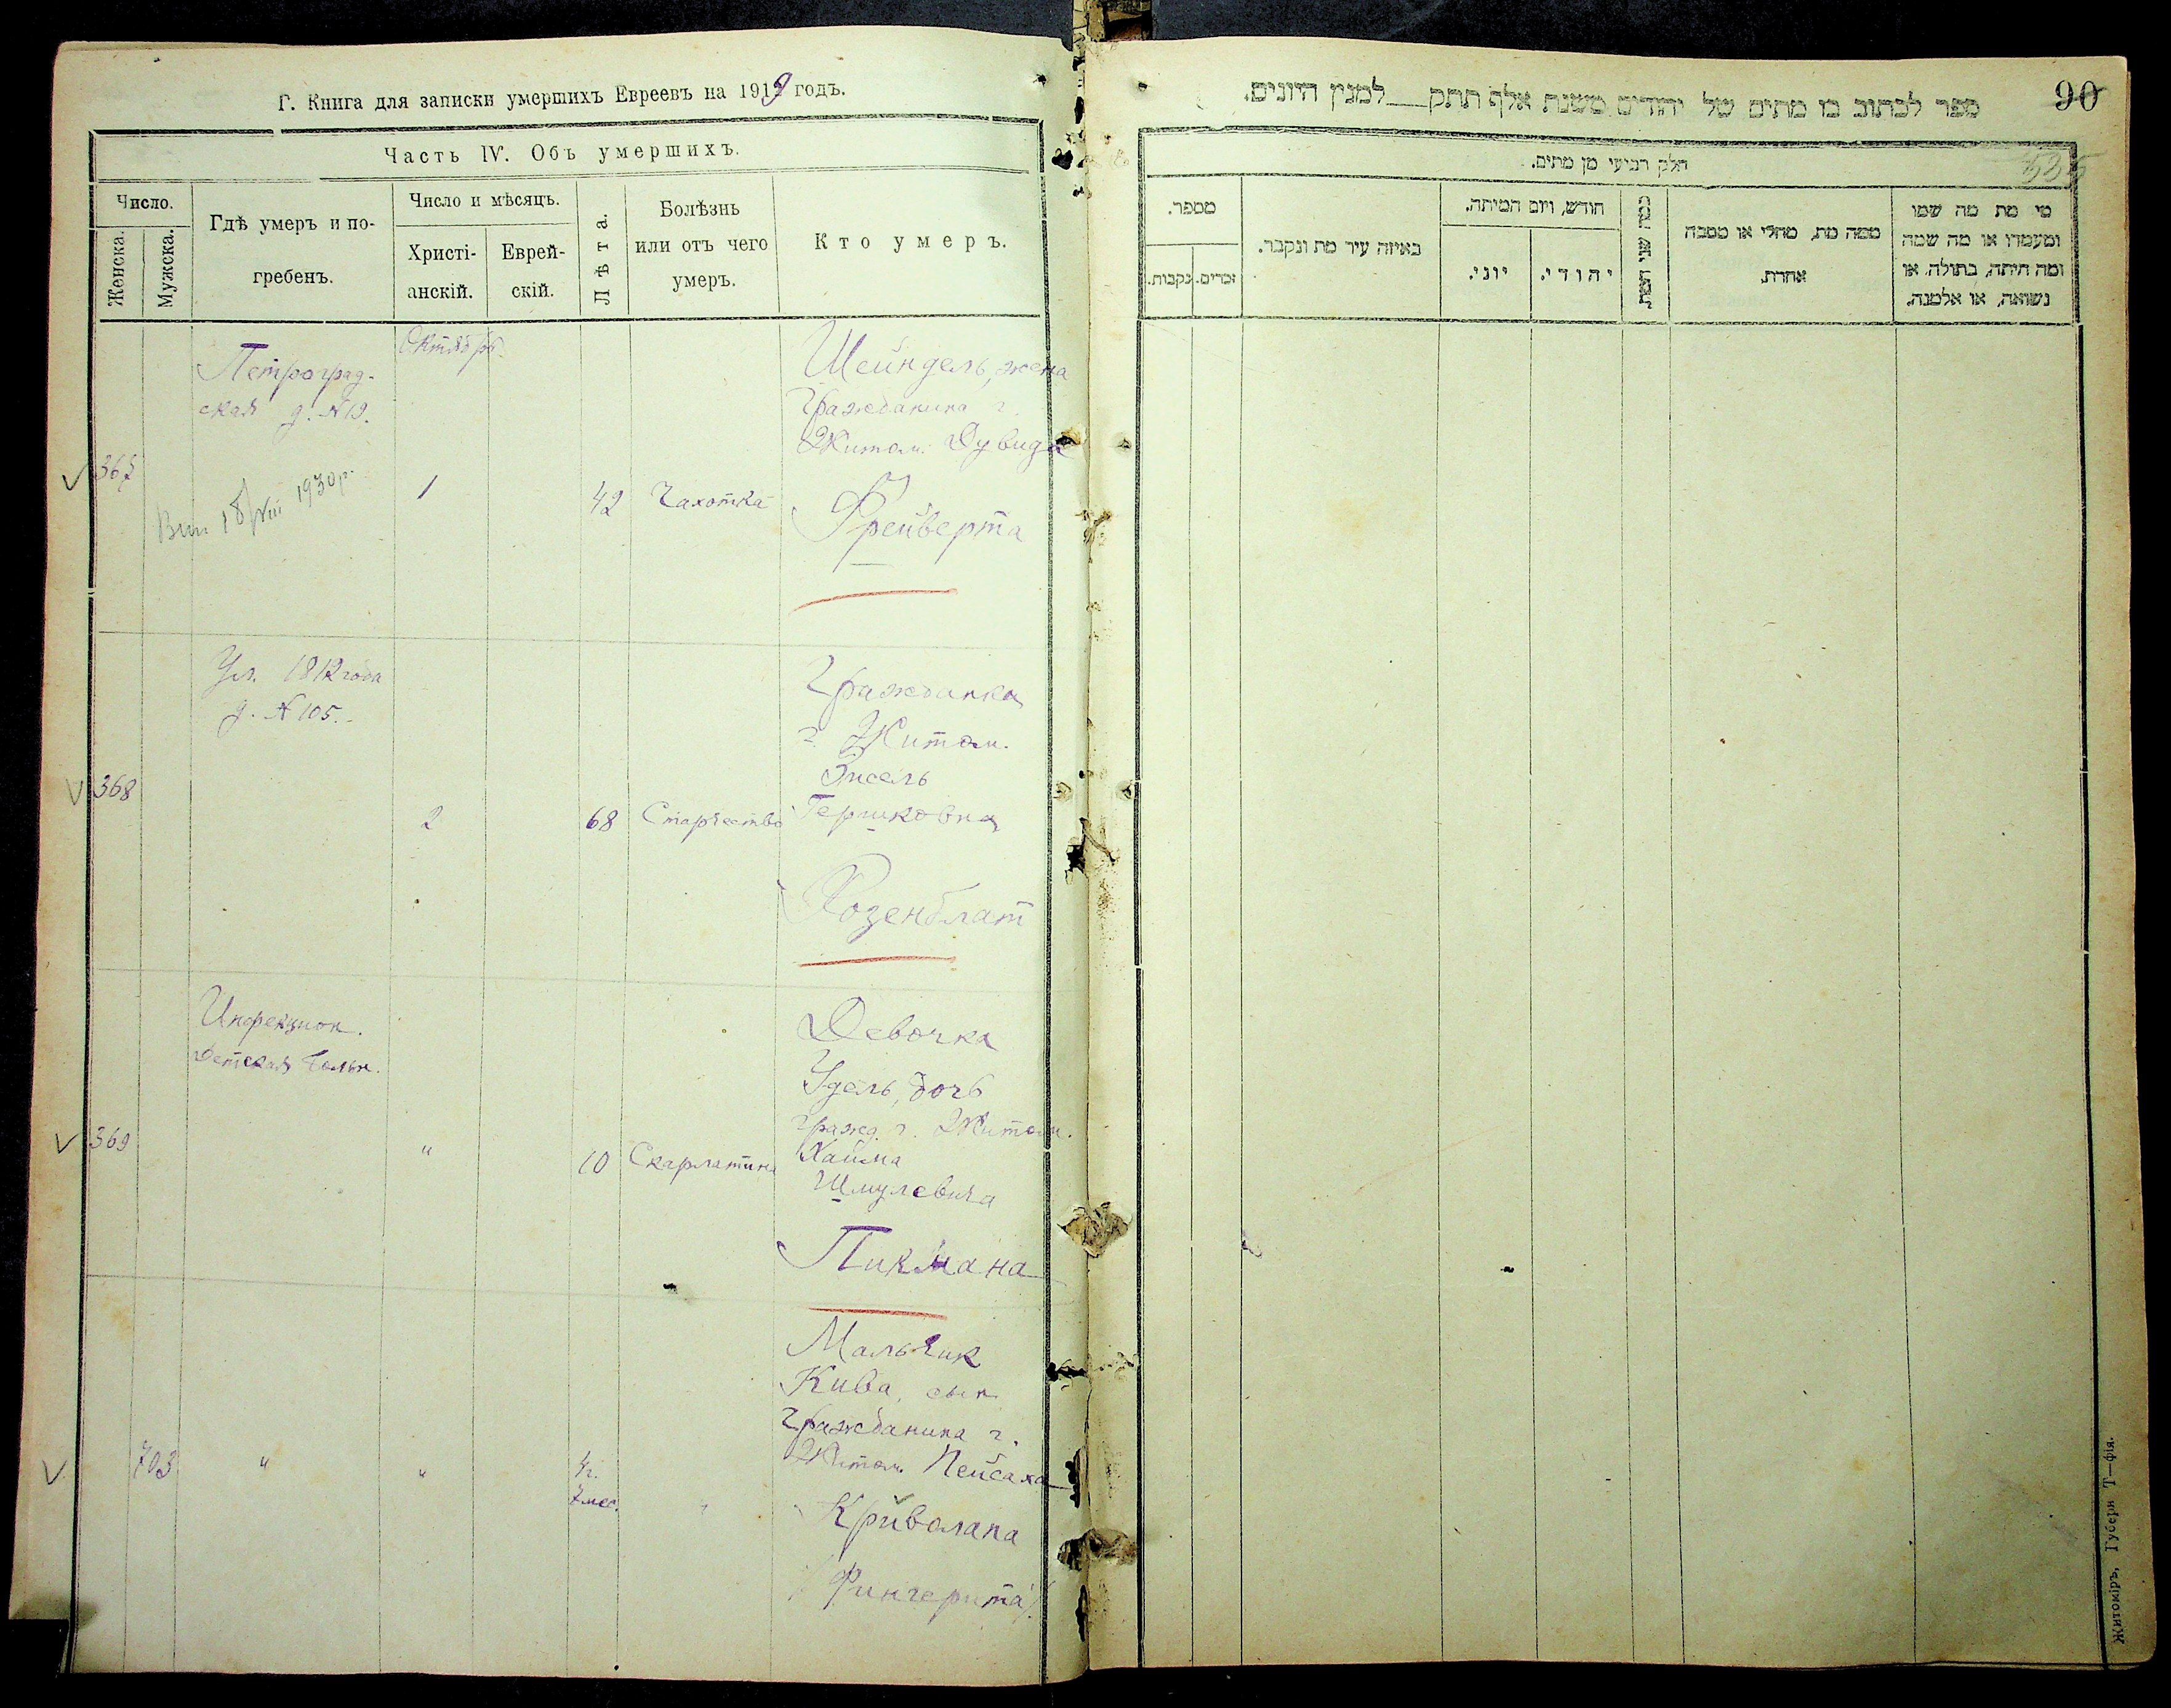 Г. Книга для записки умершихъ Евреевъ на 1919 годъ.
Часть IV. Объ умершихъ.
Число.
Женска.
Мужска.
Гдѣ умеръ и по-
гребенъ.
Число и мѣсяцъ.
Христі-
анскій.
Еврей-
скій.
Лѣта.
Болѣзнь
или отъ чего
умеръ.
Кто умеръ.
Октябрь.
367
Петроград-
ская д. №19.
1
42
Чахотка
Шейндель, жена
гражданина г.
Житом. Дувида
Фрейверта
18/VIII 1930 р.
368
Ул. 1812 года
д. №105.
2
68
Старчество
Гражданка
г. Житом.
Энсель
Гершковна
Розенблат
369
Инфекцион.
Детская больн.
"
10
Скарлатина
Девочка
Удель, дочь
гражд. г. Житом.
Хаима
Шмулевича
Пикмана
703
"
"
4 г.
7 мес.
"
Мальчик
Кива, сын
гражданина г.
Житом. Пейсаха
Криволапа
/Фингерита/.
ספר לכתוב בו מתים של יהודים משנת אלף תתק__למנין היונים.
90
535
חלק רביעי מן מתים.
מספר.
נקבות.
זכרים.
באיזה עיר מת ונקבר.
חודש, ויום המיתה.
יוני.
יהודי.
כמה שני המת
ממה מת, מחלי או מסבה
אחרת.
מי מת מה שמו
ומעמדו או מה שמה
ומה היתה, בתולה, או
נשואה, או אלמנה.
Житомiръ, Губерн Т—фiя.